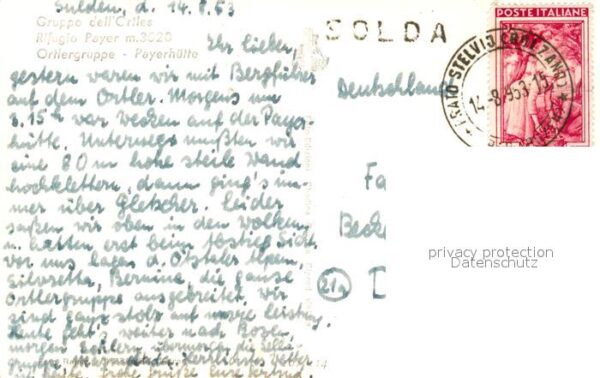 Sulden, d. 14.8.53
Gruppo dell'Ortles
Rifugio Payer m. 3020
Ortlergruppe - Payerhütte
SOLDA
POSTE ITALIANE
14-8-953-15
Ihr Lieben,
gestern waren wir mit Bergführer
auf dem Ortler. Morgens um
3.15 h war wecken auf der Payer
hütte. Unterwegs mußten wir
eine 80 m hohe steile Wand
hochklettern, dann ging's im-
mer über Gletscher. Leider
saßen wir oben in den Wolken
u. hatten erst beim Abstieg Sicht.
vor uns lagen d. Ötztaler Alpen,
Silvretta, Bernina, die ganze
Ortlergruppe ausgebreitet. Wir
sind ganz stolz auf unsere Leistung.
Heute geht's weiter nach Bozen,
morgen übermorgen die Sella-
gruppe
Deutschland
Fa
Beck
21a
D
privacy protection
Datenschutz